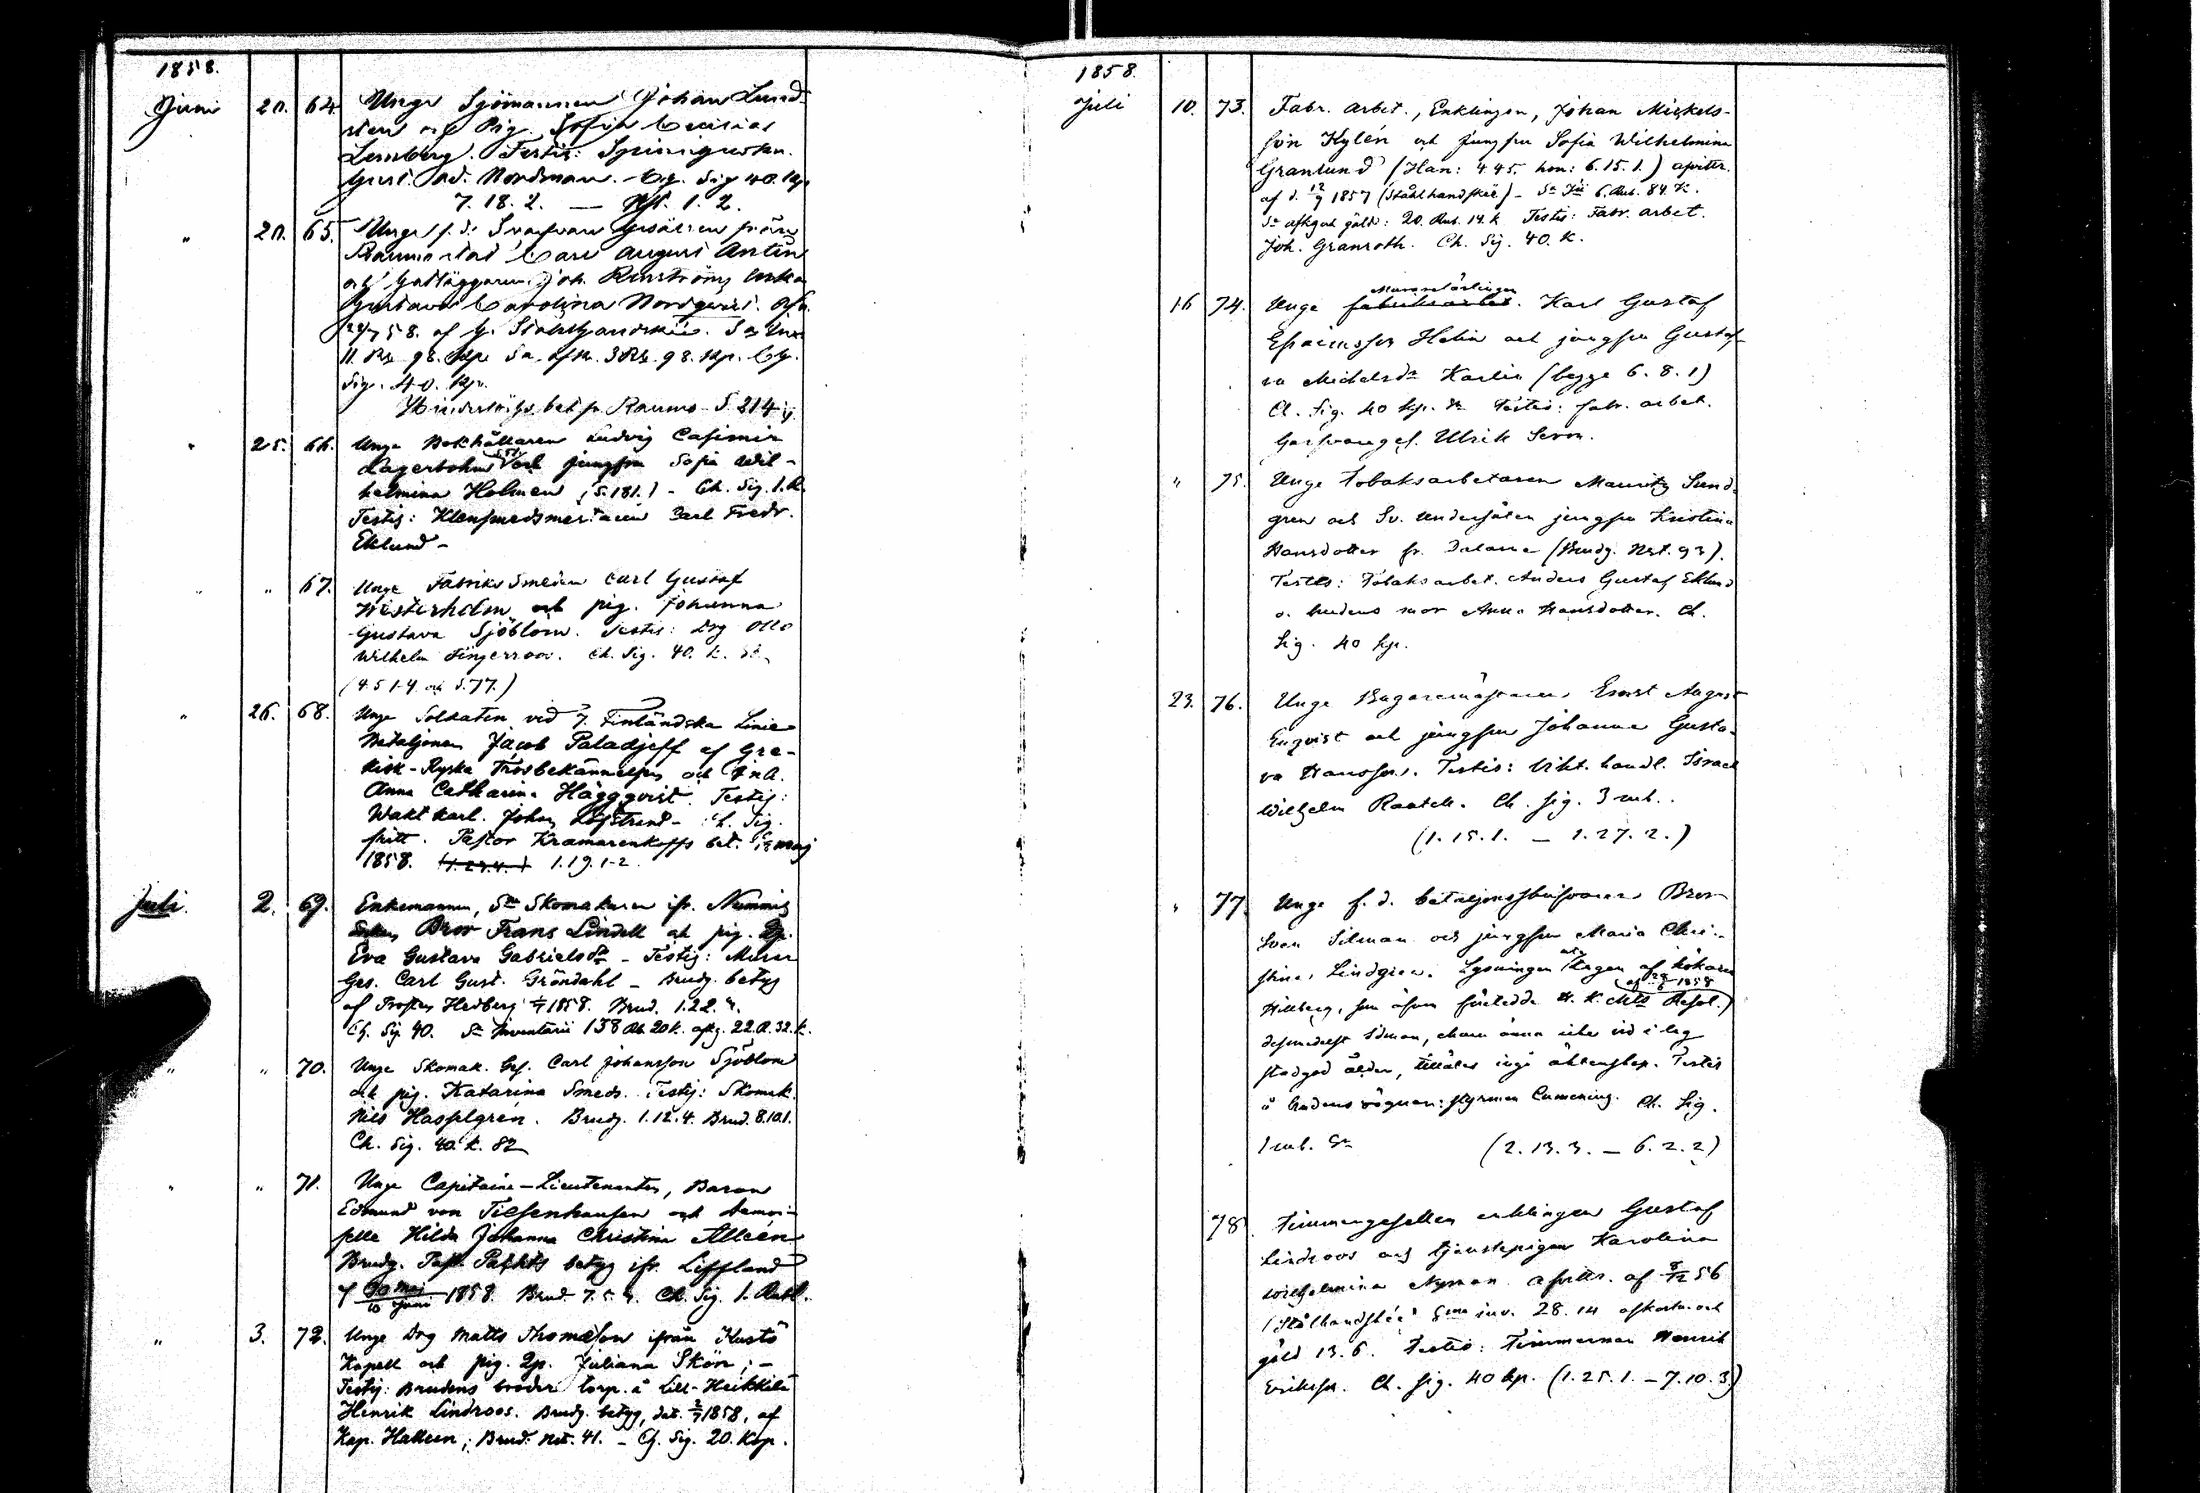 1858.
Juni 20. 64. Unge Sjömannen Johan Lund-
sten och Pig. Sofia Cecilia
Lemberg. Testis:
Gust. Ad. Nordman. Ch. Sig 40. kp.
7. 18. 2. — Nst. 1. 2.
" 20. 65. Unge f. d. Svarfvare Gesällen från
Raumo stad Carl August Antin
och Gatläggaren Joh. Renströms enka
Gustava Carolina Nordqvist.
58. af G. Stålhandske. Sa Inv.
11. Rb. 98. kp. Sa. afk. 3 Rb. 98. kp. Ch.
Sig. 40. kp.
Hinderslöhs. bet. fr. Raumo S. 214
" 25. 66. Unge Bokhållaren Ludvig Casimir
Lagerbohm och jungfru Sofia Wil-
helmina Holmen (S. 181.) - Ch. Sig. 1. R.
Testis: Klensmedsmästaren Carl Fredr.
Eklund -
" " 67. Unge Fabriks Smeden Carl Gustaf
Westerholm och pig. Johanna
Gustava Sjöblom. Testis: Drg Otto
Wilhelm Fingerroos. Ch. Sig. 40. k.
(4. 5 1-4. och S. 77.)
" 26. 68. Unge Soldaten vid 7. Finländska Linie
Bataljonen Jacob Paladjeff af Gre-
kisk-Ryska Trosbekännelsen och
Anna Catharina Häggqvist. Testis:
Waktkarl. Johan Löfstrand - Ch. Sig.
fritt. Pastor Kramarenkoffs bet. maj
1858. (1. 29. 4.) 1. 19. 1-2.
Juli. 2. 69. Enkemannen, Sn Skomakaren ifr. Nummis
Socken, Bror Frans Lindell och pig.
Eva Gustava Gabrielsdr - Testis: Murar
Ges. Carl Gust. Gröndahl - Brudg. betyg
af Prosten Hedberg 1858. Brud. 1. 22.
Ch. Sig. 40. Sn Inventarii 138 Rb. 20 k. afkg. 22. R. 32. k.
" " 70. Unge Skomak. Ges. Carl Johansson Sjöblom
och pig. Katarina Smeds. Testis: Skomak.
Nils Hasselgrén. Brudg. 1. 12. 4. Brud. 8. 10. 1.
Ch. Sig. 40. k. 82
" " 71. Unge Capitaine-Lieutenanten, Baron
Edmund von Tiesenhausen och Demoi-
selle Hilda Johanna Christina Alléen
Brudg. Past. betyg ifr. Liffland
af 30 Maj / 10 Juni 1858. Brud. 7. 5. Ch. Sig. 1. Rubl.
" 3. 72. Unge Drg Matts Thomasson ifrån Kustö
Kapell och pig. Juliana Skön; -
Testis: Brudens broder torp. å Lill-Heikkilä
Henrik Lindroos. Brudg. betyg, dat. 2/7 1858, af
Kap. Halleen; Brud: Nst. 41. - Ch. Sig. 20. Kop.
1858.
Juli 10. 73. Fabr. arbet., Enklingen, Johan Mickels-
son Kylén och Jungfru Sofia Wilhelmina
Granlund (Han: 4 45. hon: 6. 15. 1.) afvittr.
af d. 12/9 1857 (Stålhandske) - 6. Rub. 84 k.
Sn afkgd gäld: 20. Rub. 14. k Testis: Fabr. arbet.
Joh. Granroth. Ch. Sig. 40. k.
16 74. Unge fabriksarbet. Murarelärlingen Karl Gustaf
Efraimsson Helin och jungfru Gustaf-
va Michelsdr Karlin (begge 6. 8. 1)
Ch. Sig. 40 kp. Sn Testis: fabr. arbet.
Ulrik
" 75. Unge Tobaksarbetaren Mauritz Sund-
gren och Sv. undersåten jungfru Kristina
Hansdotter fr. Dalarne (Brudg. Nst. 93).
Testes: Tobaksarbet. Anders Gustaf Eklund
o. brudens mor Anna Hansdotter. Ch.
Sig. 40 kp.
23. 76. Unge Bagaremästaren Ernst August
Enqvist och jungfru Johanna Gusta-
va Hansson. Testis: Vikt. handl. Israel
Wilhelm Raatell. Ch. sig. 3 rub.
(1. 15. 1. — 1. 27. 2.)
" 77. Unge f. d. bataljonsskrifvaren Bror
Sven Silman och jungfru Maria Chri-
stina Lindgren. Lysningen tagen af kokare
Hillberg, som äfven företedde H. K. Mts Resol.
af 1858
desmedelst Silman, ehuru ännu icke vid i lag
stadgad ålder, tillåtes ingå äktenskap. Testis
å brudens vägnar: styrman Cumening. Ch. Sig.
1 rub. Sn (2. 13. 3. — 6. 2. 2)
78. Timmergesällen enklingen Gustaf
Lindroos och tjenstepigan Karolina
Wilhelmina Nyman. afvittr. af 8/12 56
(Stålhandske) Smn inv. 28. 14 afkorta. och
gäld 13. 6. Testis: Timmerman Henrik
Eriksson. Ch. sig. 40 kp. (1. 25. 1. — 7. 10. 3)